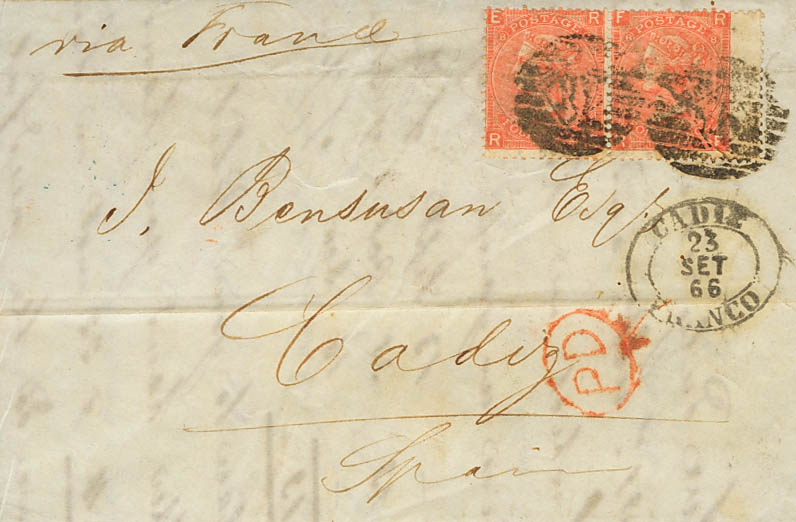 via France
E POSTAGE R
R
F POSTAGE R
R F
J. Bensusan Esqr
CADIZ
23
SET
66
FRANCO
Cadiz
PD
Spain